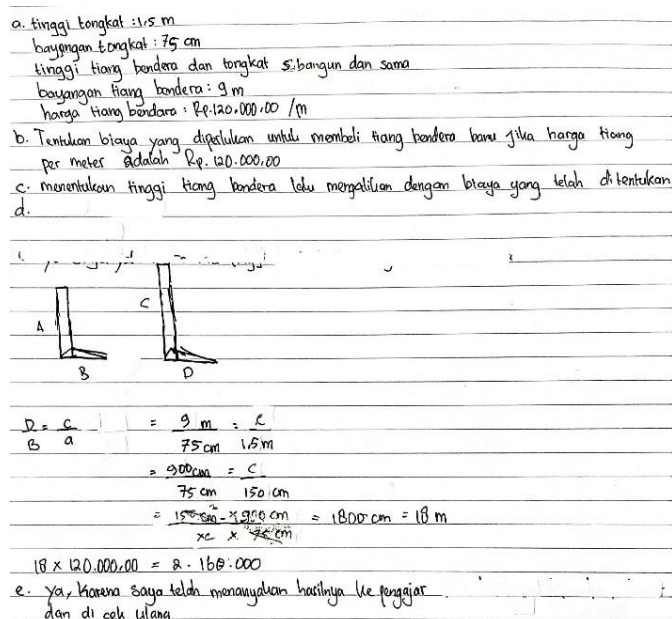 a. tinggi tongkat : 1.5 m
bayangan tongkat : 75 cm
tinggi tiang bendera dan tongkat sebangun dan sama
bayangan tiang bendera : 9 m
harga tiang bendara : Rp.120.000,00 /m
b. Tentukan biaya yang diperlukan untuk membeli tiang bendera baru jika harga tiang
per meter adalah Rp. 120.000,00
c. menentukan tinggi tiang bendera lalu mengalikan dengan biaya yang telah ditentukan
d.
A B C D
D/B = c/a = 9 m / 75 cm = c / 1,5 m
= 900 cm / 75 cm = c / 150 cm
= 150 cm x 900 cm / 75 cm = 1800 cm = 18 m
18 x 120.000,00 = 2.160.000
e. ya, karena saya telah menanyakan hasilnya ke pengajar
dan di cek ulang